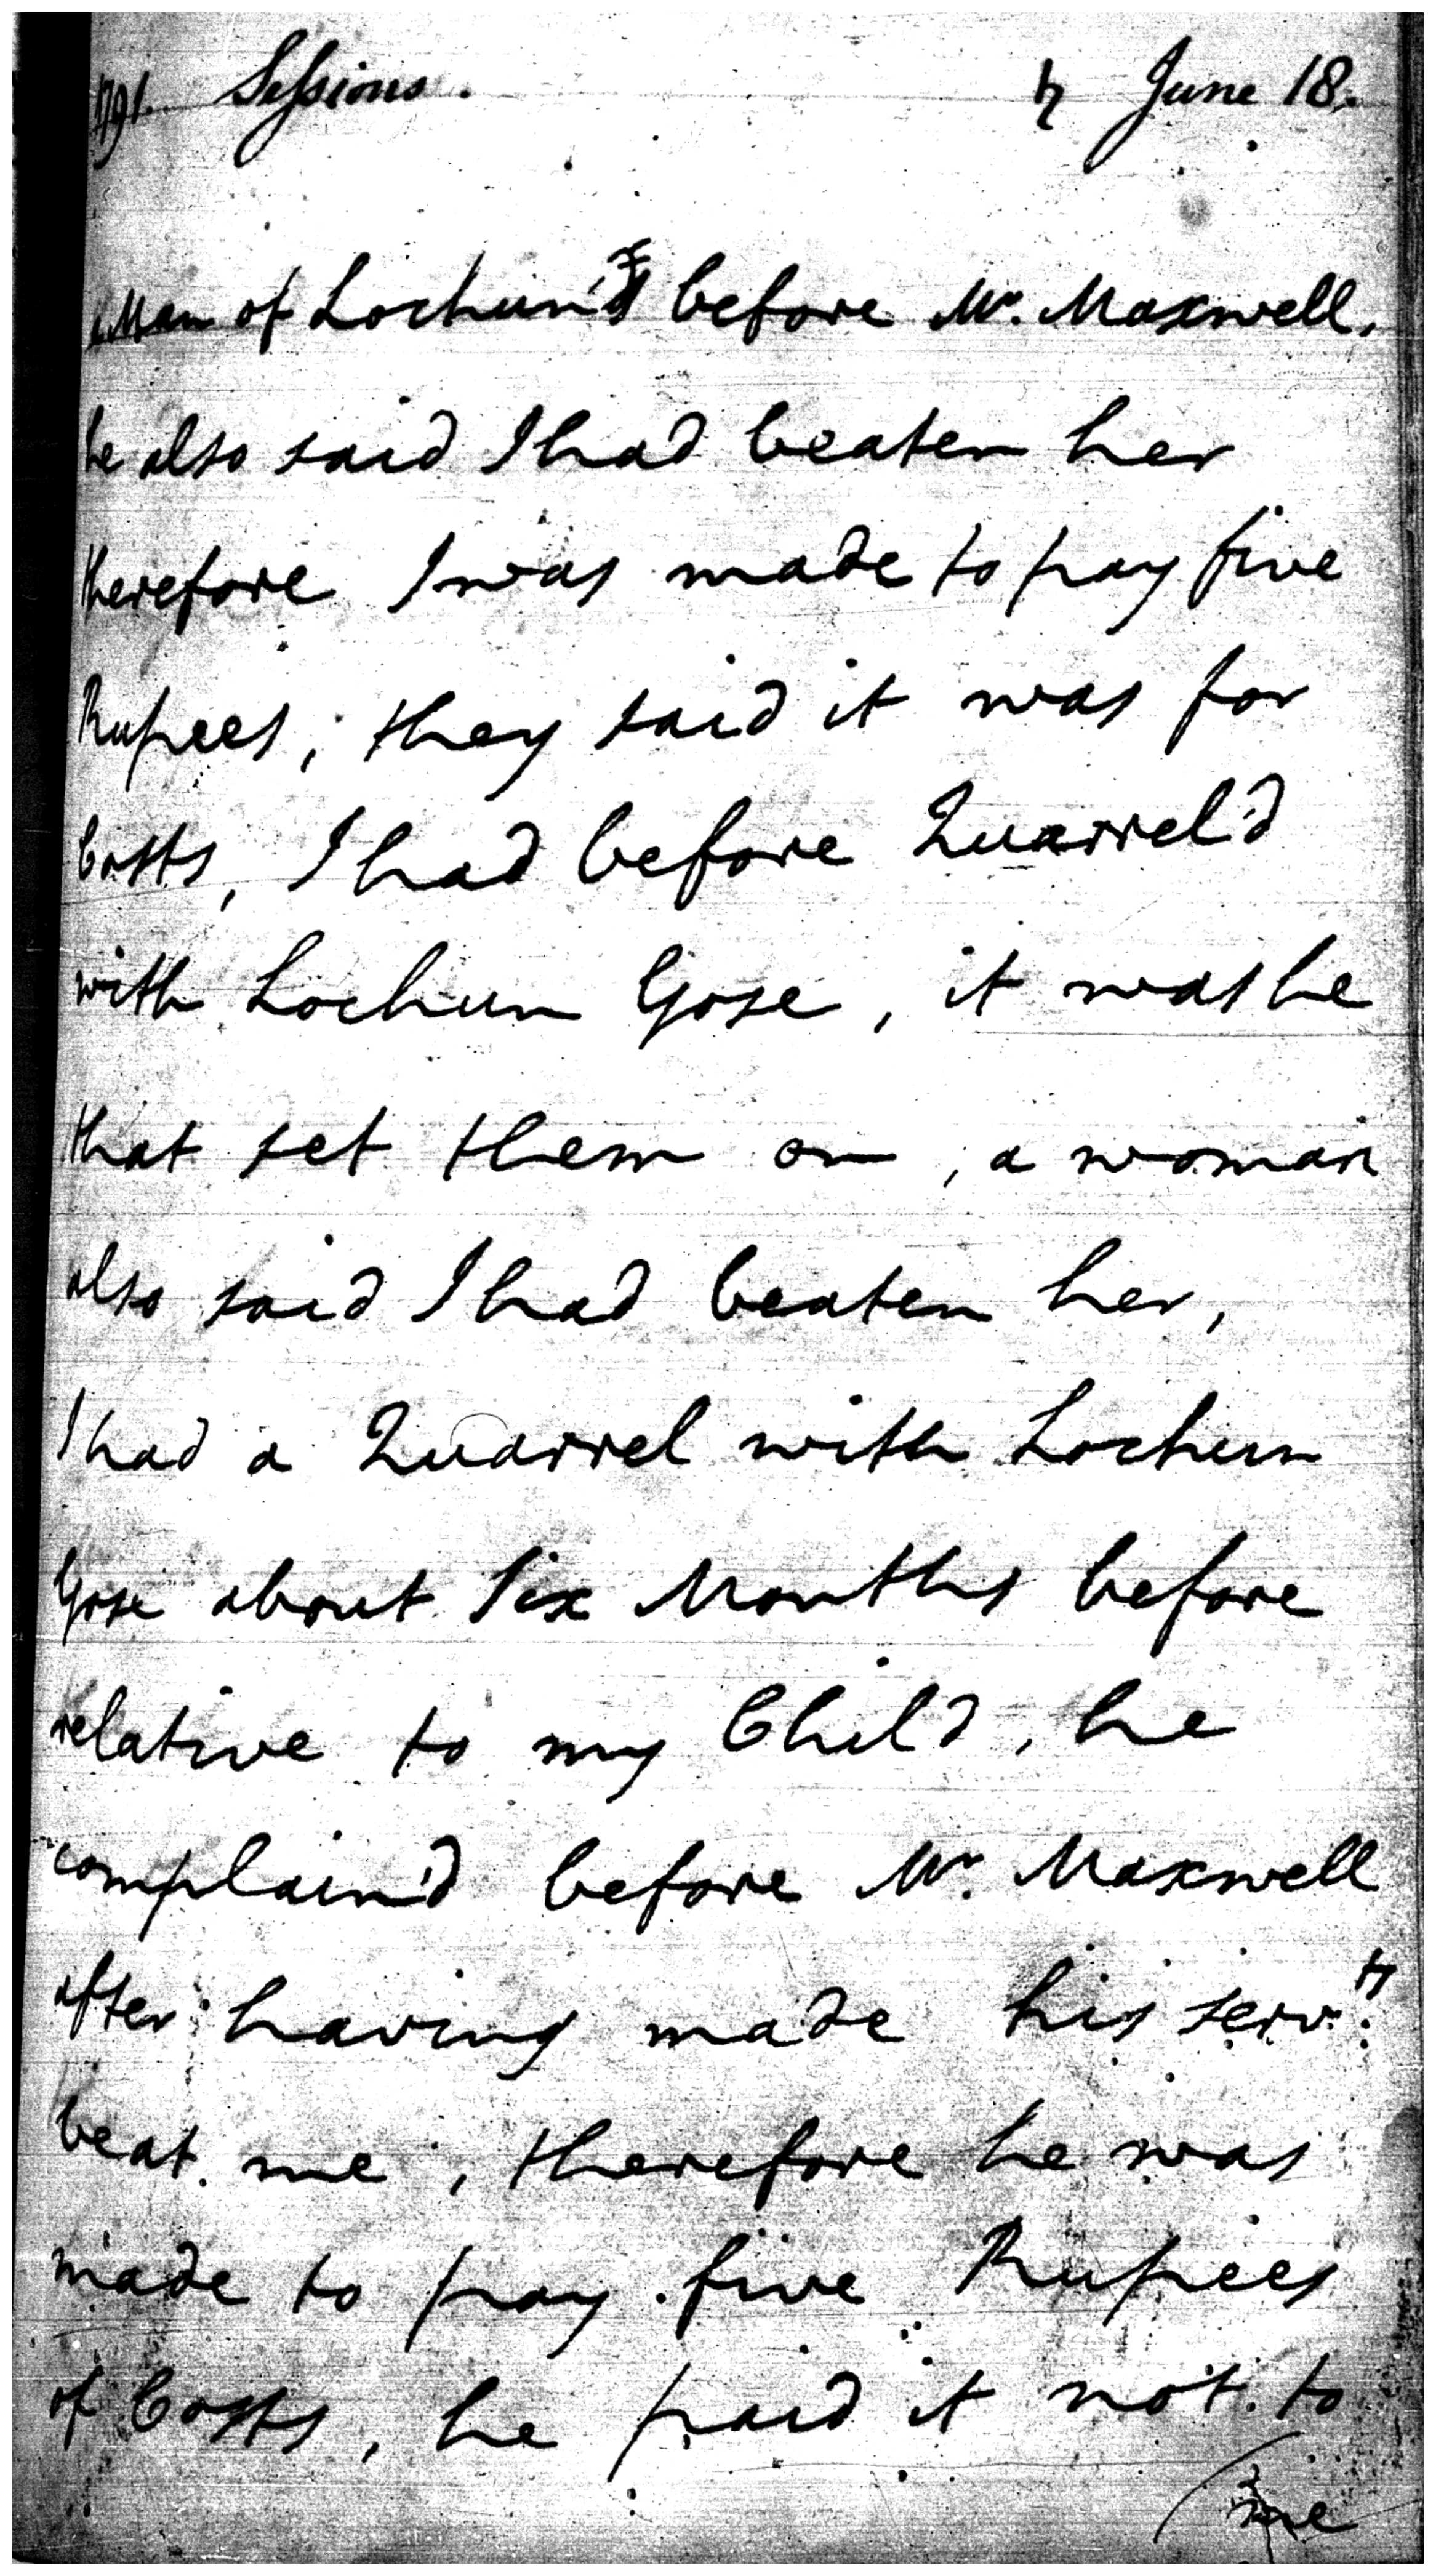 1791. Sessions. ♄ June 18.
Man of Lochun's before Mr. Maxwell,
he also said I had beaten her
therefore I was made to pay five
Rupees, they said it was for
Costs, I had before Quarrel'd
with Lochun Gose, it was he
that set them on, a woman
also said I had beaten her,
I had a Quarrel with Lochun
Gose about Six Months before
relative to my Child, he
complain'd before Mr. Maxwell
after having made his servts.
beat me, therefore he was
made to pay five Rupees
of Costs, he paid it not to
me